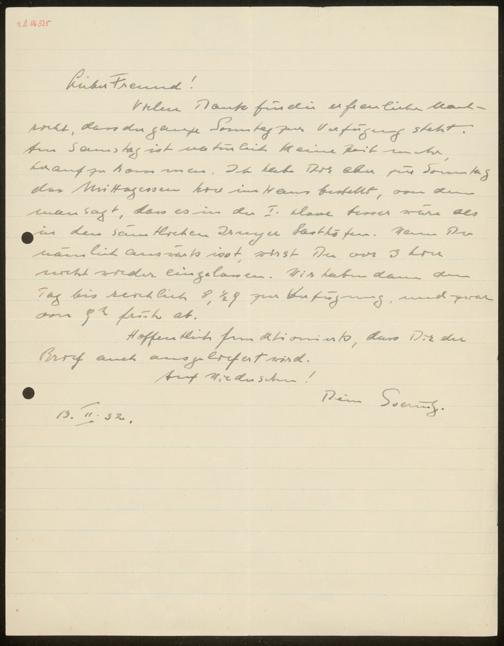 Lieber Freund!
Vielen Dank für die erfreuliche Nach-
richt, dass der ganze Sonntag zur Verfügung steht.
Am Samstag ist natürlich keine Zeit mehr,
heraufzukommen. Ich habe Dir aber für Sonntag
das Mittagessen hier im Haus bestellt, von dem
man sagt, dass es in der I. Klasse besser wäre als
in den sämtlichen Gasthöfen. Wenn Du
nämlich auswärts isst, wirst Du vor 3 Uhr
nicht wieder eingelassen. Wir haben dann den
Tag bis reichlich 8, ½9 zur Verfügung, und zwar
von 9h früh ab.
Hoffentlich funktionierts, dass Dir der
Brief auch ausgeliefert wird.
Auf Wiedersehen!
Dein
II. 32.